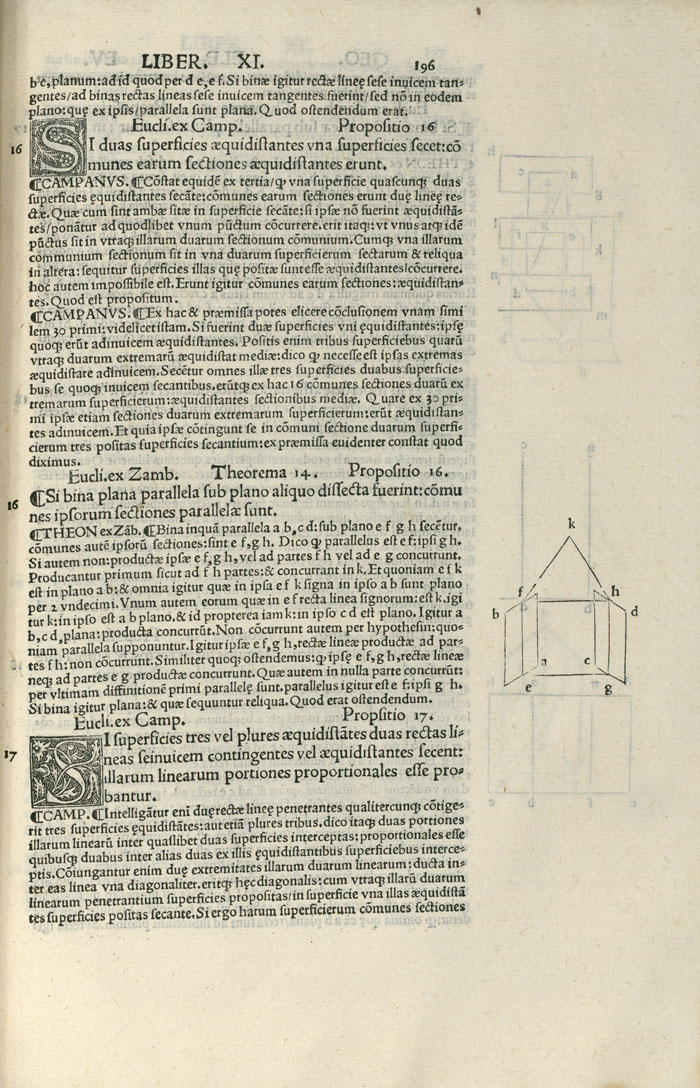 LIBER. XI. 196
b c, planum: ad id quod per d e, e f. Si binæ igitur rectæ lineę sese inuicem tan-
gentes/ad binas rectas lineas sese inuicem tangentes fuerint/sed nō in eodem
plano: quę ex ipsis/parallela sunt plana. Quod ostendendum erat.
Eucli. ex Camp. Propositio 16
16
SI duas superficies æquidistantes vna superficies secet: cō
munes earum sectiones æquidistantes erunt.
¶CAMPANVS. ¶Cōstat equidē ex tertia/ꝙ vna superficie quascunqꝫ duas
superficies ęquidistantes secāte: cōmunes earum sectiones erunt duę lineę re-
ctæ. Quæ cum sint ambæ sitæ in superficie secāte: si ipsæ nō fuerint æquidistā-
tes/ponātur ad quodlibet vnum pūctum cōcurrere. erit itaqꝫ: vt vnus atqꝫ idē
pūctus sit in vtraqꝫ illarum duarum sectionum cōmunium. Cumqꝫ vna illarum
communium sectionum sit in vna duarum superficierum sectarum & reliqua
in altera: sequitur superficies illas quę positæ sunt esse æquidistantes/cōcurrere.
hoc autem impossibile est. Erunt igitur cōmunes earum sectiones: æquidistan-
tes. Quod est propositum.
¶CAMPANVS. ¶Ex hac & præmissa potes elicere cōclusionem vnam simi
lem 30 primi: videlicet istam. Si fuerint duæ superficies vni ęquidistantes: ipsę
quoqꝫ erūt adinuicem æquidistantes. Positis enim tribus superficiebus quarū
vtraqꝫ duarum extremarū æquidistat mediæ: dico ꝙ necesse est ipsas extremas
æquidistare adinuicem. Secētur omnes illæ tres superficies duabus superficie-
bus se quoqꝫ inuicem secantibus. erūtqꝫ ex hac 16 cōmunes sectiones duarū ex
tremarum superficierum: æquidistantes sectionibus mediæ. Quare ex 30 pri-
mi ipsæ etiam sectiones duarum extremarum superficierum: erūt æquidistan-
tes adinuicem. Et quia ipsæ cōtingunt se in comuni sectione duarum superfi-
cierum tres positas superficies secantium: ex præmissa euidenter constat quod
diximus.
Eucli. ex Zamb. Theorema 14. Propositio 16.
16
¶Si bina plana parallela sub plano aliquo dissecta fuerint: cōmu
nes ipsorum sectiones parallelæ sunt.
¶THEON ex Zāb. ¶Bina inquā parallela a b, c d: sub plano e f g h secētur.
cōmunes autē ipsorū sectiones: sint e f, g h. Dico ꝙ parallelus est e f: ipsi g h.
Si autem non: productæ ipsæ e f, g h, vel ad partes f h vel ad e g concurrent.
Producantur primum sicut ad f h partes: & concurrant in k. Et quoniam e f k
est in plano a b: & omnia igitur quæ in ipsa e f k signa in ipso a b sunt plano
per 2 vndecimi. Vnum autem eorum quæ in e f recta linea signorum: est k. igi
tur k: in ipso est a b plano. & id propterea iam k: in ipso c d est plano. Igitur a
b, c d, plana: producta concurrūt. Non cōcurrunt autem per hypothesin: quo-
niam parallela supponuntur. Igitur ipsæ e f, g h, rectæ lineæ productæ ad par-
tes f h: non cōcurrunt. Similiter quoqꝫ ostendemus: ꝙ ipsę e f, g h, rectæ lineæ
neqꝫ ad partes e g productæ concurrunt. Quæ autem in nulla parte concurrūt:
per vltimam diffinitionē primi parallelę sunt. parallelus igitur est e f: ipsi g h.
Si bina igitur plana: & quæ sequuntur reliqua. Quod erat ostendendum.
Eucli. ex Camp. Propsitio 17.
17
SI superficies tres vel plures æquidistātes duas rectas li-
neas seinuicem contingentes vel æquidistantes secent:
illarum linearum portiones proportionales esse pro-
bantur.
¶CAMP. ¶Intelligātur enī duę rectæ lineę penetrantes qualitercunqꝫ cōtige-
rit tres superficies ęquidistātes: aut etiā plures tribus. dico itaqꝫ duas portiones
illarum linearū inter quaslibet duas superficies interceptas: proportionales esse
quibusqꝫ duabus inter alias duas ex illis ęquidistantibus superficiebus interce-
ptis. Cōiungantur enim duę extremitates illarum duarum linearum: ducta in-
ter eas linea vna diagonaliter. eritqꝫ hęc diagonalis: cum vtraqꝫ illarū duarum
linearum penetrantium superficies propositas/in superficie vna illas æquidistā
tes superficies positas secante. Si ergo harum superficierum cōmunes sectiones
k
f h
b d
a c
e g